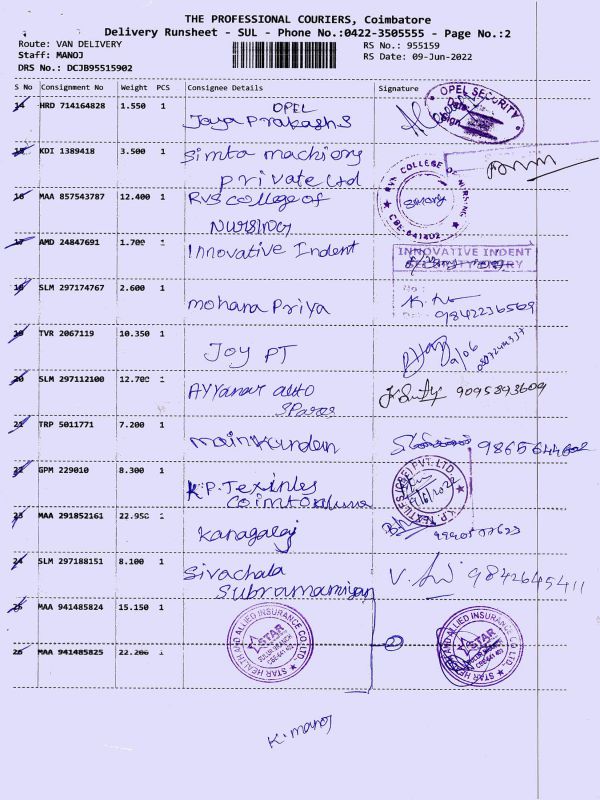 THE PROFESSIONAL COURIERS, Coimbatore
Delivery Runsheet - SUL - Phone No.:0422-3505555 - Page No.:2
Route: VAN DELIVERY
Staff: MANOJ
DRS No.: DCJB95515902
RS No.: 955159
RS Date: 09-Jun-2022
S No Consignment No Weight PCS Consignee Details Signature
14 HRD 714164828 1.550 1 OPEL
Jaya Prakash S
OPEL SECURITY
15 KDI 1389418 3.500 1 Simta machiery
private Ltd
16 MAA 857543787 12.400 1 RVS college of
Nursing
RVS COLLEGE OF NURSING
CBE-641402
17 AMD 24847691 1.700 1 Innovative Indent
INNOVATIVE INDENT
SECURITY ENTRY
18 SLM 297174767 2.600 1 mohana Priya
9842236569
19 TVR 2067119 10.350 1 Joy PT
20 SLM 297112100 12.700 1 Ayyanar auto
Spares
9095893609
21 TRP 5011771 7.200 1 manikundan
9865644602
22 GPM 229010 8.300 1 K.P. Textiles
K.P. TEXTILES (CBE) PVT. LTD.
9/6/2022
23 MAA 291852161 22.950 1 Kanagaraj
24 SLM 297188151 8.100 1 Sivachala
Subramaniyan
9842645411
25 MAA 941485824 15.150 1
STAR HEALTH AND ALLIED INSURANCE CO. LTD.
STAR
SULUR BRANCH
CBE-641 402
2
STAR HEALTH AND ALLIED INSURANCE CO. LTD.
STAR
SULUR BRANCH
CBE-641 402
26 MAA 941485825 22.200 1
K. manoj